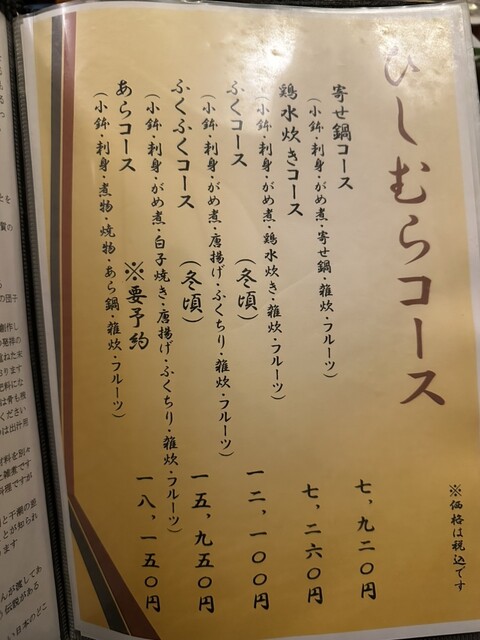 ひしむらコース
※価格は税込です
寄せ鍋コース
七、九二〇円
(小鉢・刺身・がめ煮・寄せ鍋・雑炊・フルーツ)
鶏水炊きコース
七、二六〇円
(小鉢・刺身・がめ煮・鶏水炊き・雑炊・フルーツ)
ふくコース (冬頃)
一二、一〇〇円
(小鉢・刺身・がめ煮・唐揚げ・ふくちり・雑炊・フルーツ)
ふくふくコース (冬頃)
一五、九五〇円
(小鉢・刺身・がめ煮・白子焼き・唐揚げ・ふくちり・雑炊・フルーツ)
あらコース ※要予約
一八、一五〇円
(小鉢・刺身・煮物・焼物・あら鍋・雑炊・フルーツ)